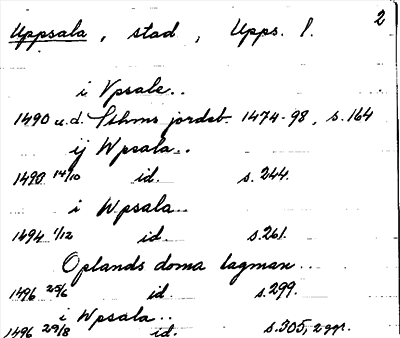 2
Uppsala, stad, Upps. l.
i Vpsale..
1490 u.d. Sthms jordeb. 1474-98, s. 164
ij Wpsala..
1490 14/10 id. s. 244.
i Wpsala..
1494 1/12 id. s. 261.
Oplands doma lagman...
1496 25/6 id. s. 299.
i Wpsala..
1496 29/8 id. s. 305, 2 ggr.